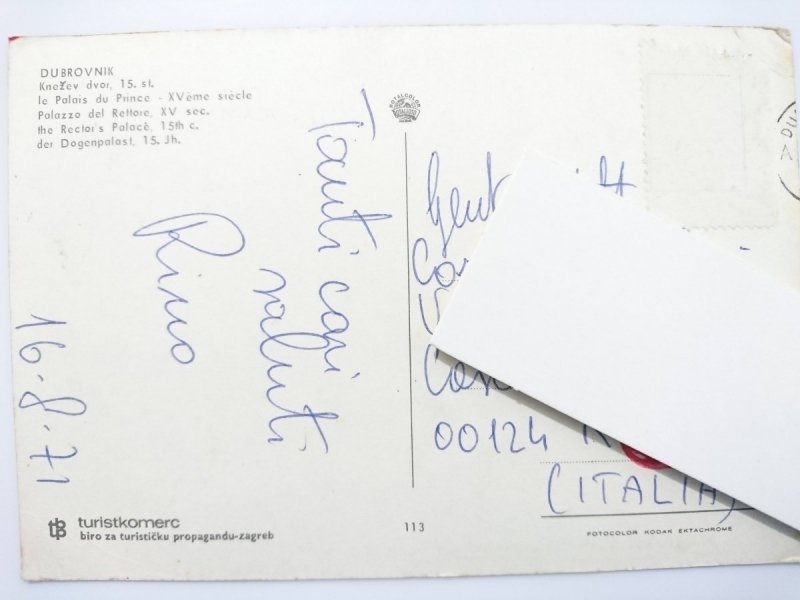 DUBROVNIK
Knežev dvor, 15. st.
le Palais du Prince - XVème siècle
Palazzo del Rettore, XV sec.
the Rector's Palace, 15th c.
der Dogenpalast, 15. Jh.
Tanti cari
saluti
Rino
16-8-71
00124
(ITALIA)
turistkomerc
biro za turističku propagandu-zagreb
113
FOTOCOLOR KODAK EKTACHROME